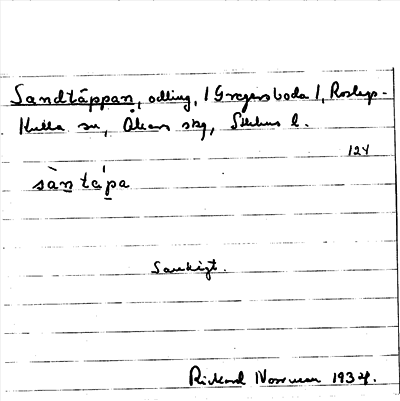 Sandtäppan, odling, /Gregersboda/, Roslags-
Kulla sn, Åkers skg, Sthlms l.
124
sàn tápa
Sankigt.
Rickard Norrman 1934.